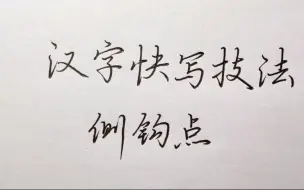 汉字快写技法
侧钩点